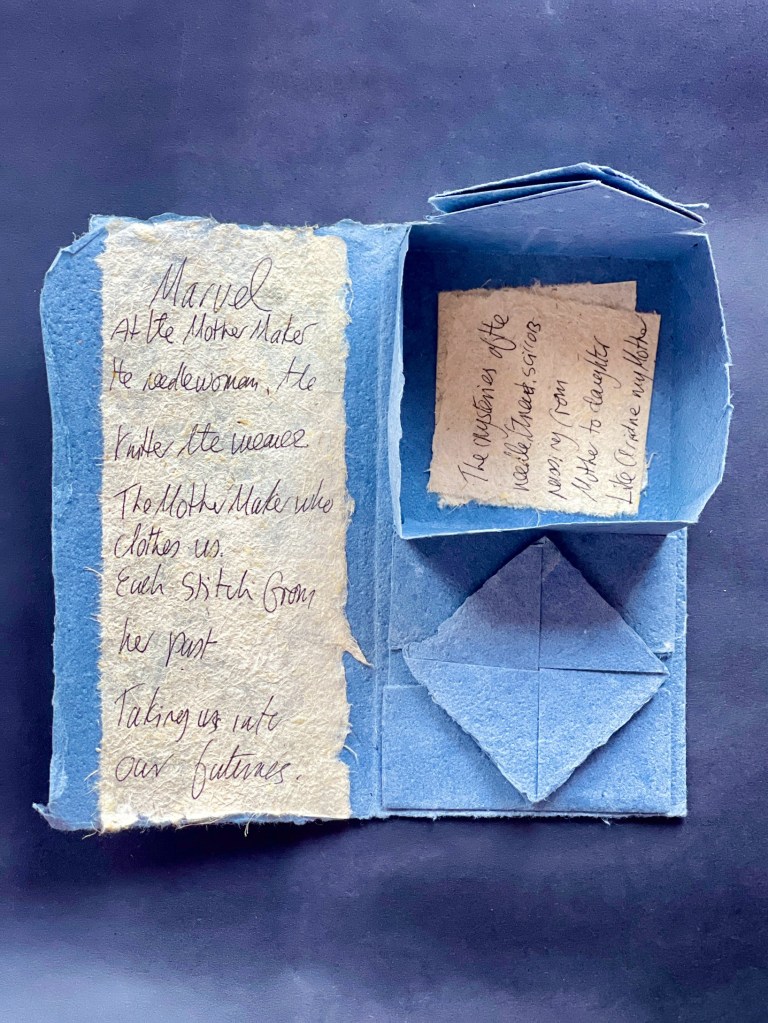 Marvel
At the Mother Maker
the needlewoman, the
knitter the weaver
The Mother Maker who
clothes us.
Each stitch from
her past
Taking us into
our futures.
The mysteries of the
needle, thread. scissors
passing from
Mother to daughter
like my Mother